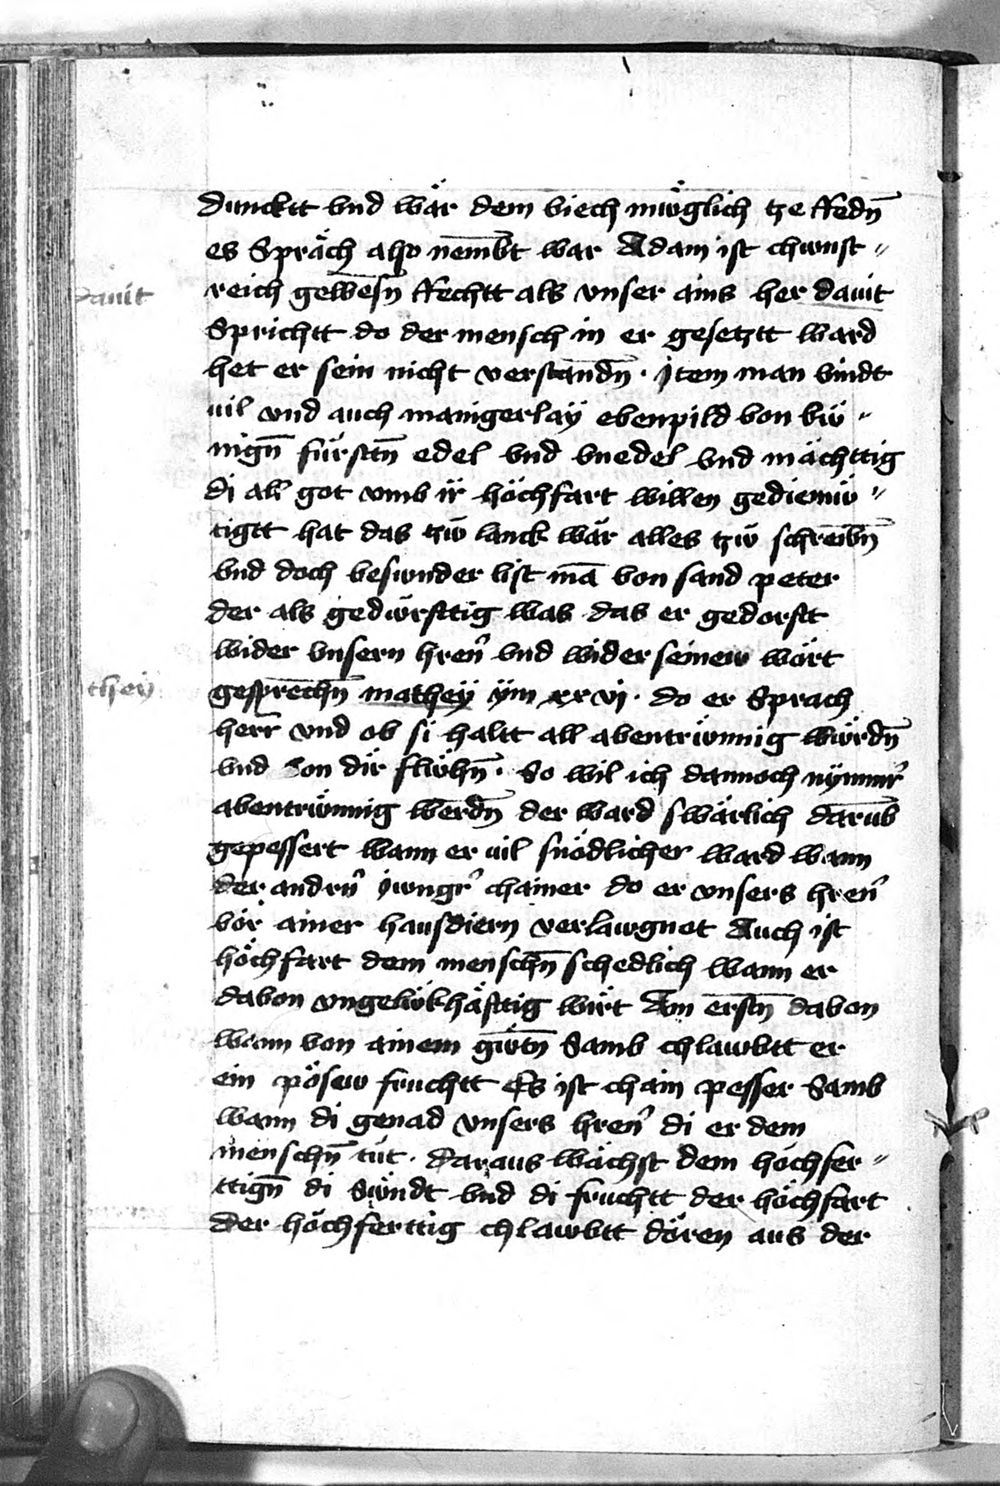 duncktt vnd wär dem viech müglich tze Redn̄
es Spräch also nembt war Adam ist chunst〃
reich gewesn̄ Rechtt als vnser ains her dauit
dauit
Sprichtt do der mensch in er gesetztt ward
het er sein nicht verstandn̄ · Jtem man vindt
vil vnd auch manigerlaÿ ebenpild von kü〃
nign̄ fürsttn̄ edel vnd vnedel vnd mächttig
di all got vmb ir höchfart willen gediemü〃
tigtt hat das tzü lanck wär alles tzü schreibn̄
vnd doch besunder list mā von sand peter
der als gedürsttig was das er gedorstt
wider vnsern hren̄ vnd wider seinew wört
gesprechn̄ matheÿ ÿm xxvj · do er Sprach
theÿ
herr̄ vnd ob si haltt all abentrünnig würdn̄
vnd von dir flühn̄ · So wil ich dannoch nÿmmr̄
abentrünnig werdn̄ der ward swärlich darūb
gepessert wann er vil snödlicher ward wann
der andrn̄ jungr̄ chainer do er vnsers hren̄
vör ainer hausdiern verlawgnet Auch ist
höchfart dem menschn̄ schedlich wann er
davon vngelükhäfftig wirt Am erstn̄ davon
wann von ainem gutn̄ Samb chlawbtt er
ein pösew fruchtt Es ist chain pesser Samb
wann di genad vnsers hren̄ di er dem
menschn̄ tüt · daraus wächst dem höchfer〃
ttign̄ di Sündt vnd di fruchtt der höchfart
der höchferttig chlawbtt dören aus der